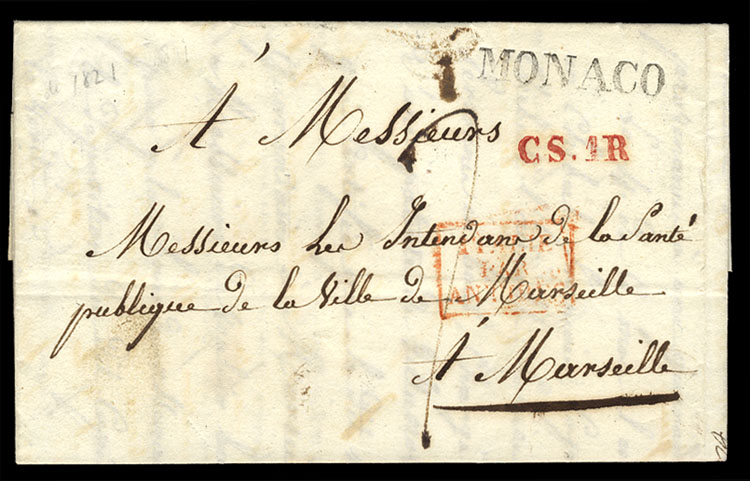 1821
MONACO
A Messieurs
CS.1R
Messieurs Les Intendans de la Santé
publique de la Ville de Marseille
PAR
A Marseille